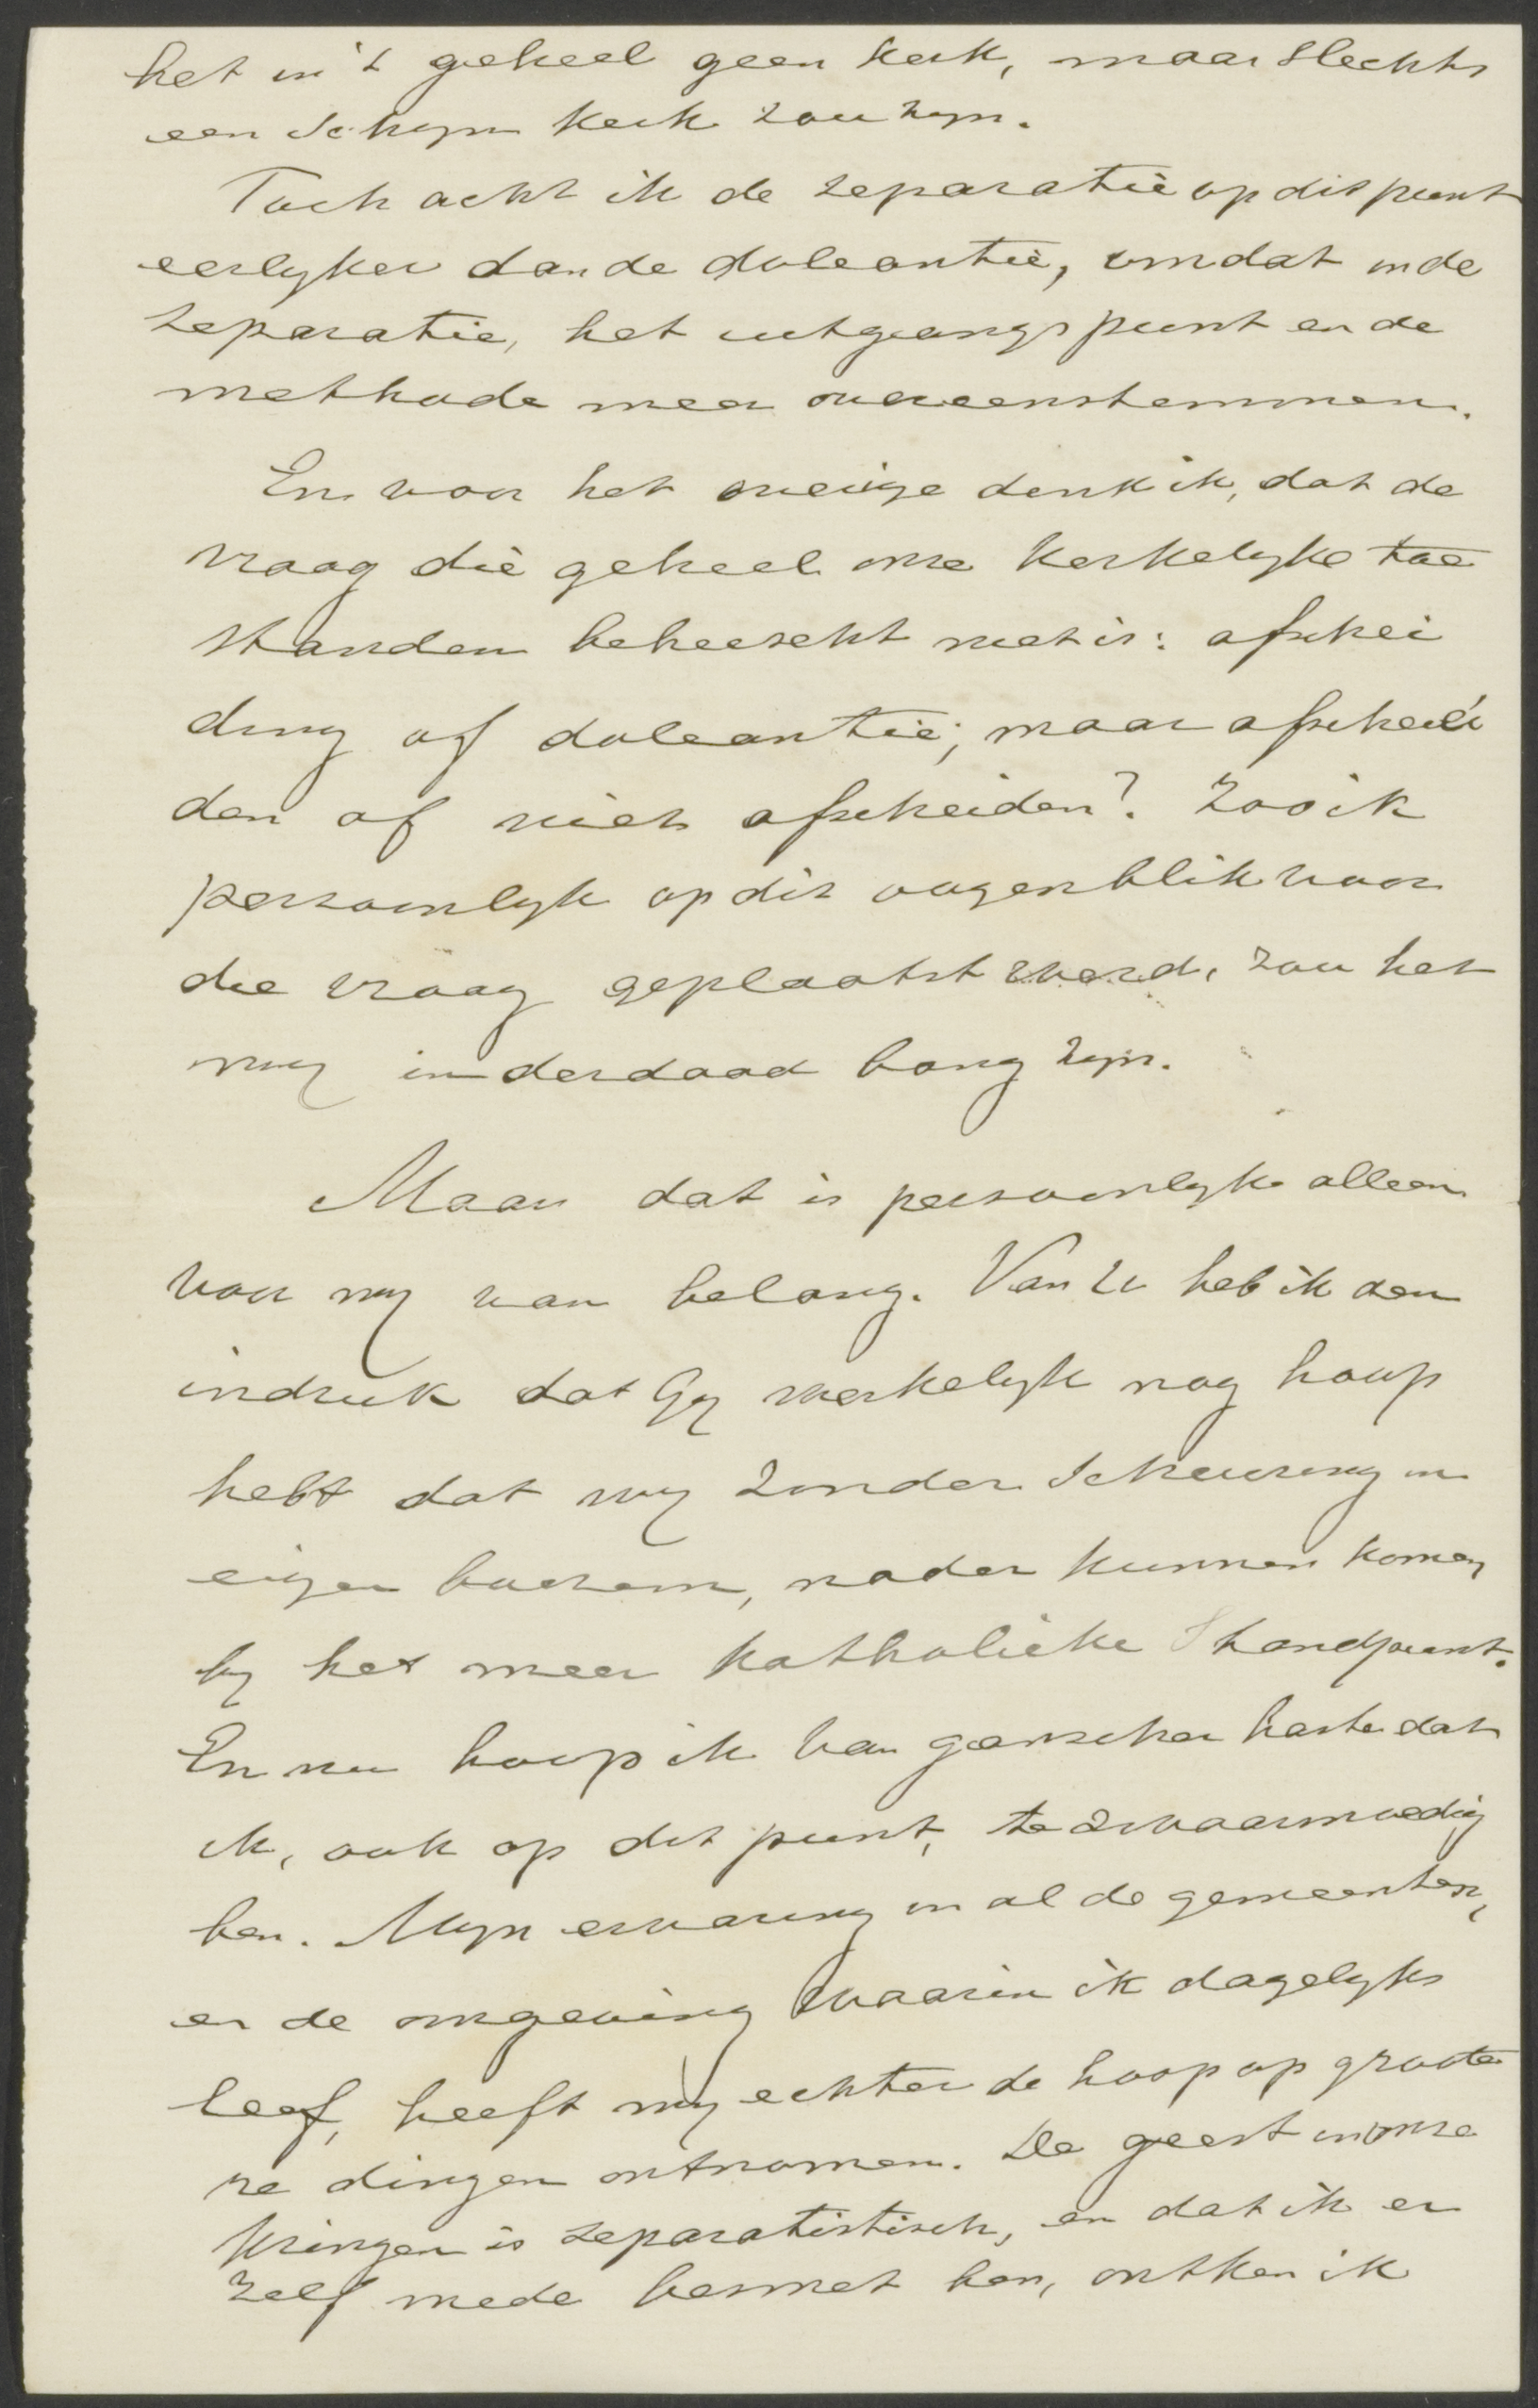 het in 't geheel geen kerk, maar slechts
een schyn kerk zou zyn.
Toch acht ik de separatie op dit punt
eerlyker dan de doleantie, omdat in de
separatie, het uitgangspunt en de
methode meer overeenstemmen.
En voor het overige denk ik, dat de
vraag die geheel onze kerkelyke toe
standen beheerscht niet is: afschei
ding of doleantie; maar afschei
den of niet afscheiden? Zoo ik
persoonlyk op dit oogenblik voor
die vraag geplaatst werd, zou het
my inderdaad bang zyn.
Maar dat is persoonlyk alleen
voor my van belang. Van U heb ik den
indruk dat Gy werkelyk nog hoop
hebt dat wy zonder scheuring in
eigen boezem, nader kunnen komen
by het meer katholieke standpunt.
En nu hoop ik van ganscher harte dat
ik, ook op dit punt, te zwaarmoedig
ben. Myn ervaring in al de gemeenten,
en de omgeving waarin ik dagelyks
leef, heeft my echter de hoop op groote
re dingen ontnomen. De geest in onze
kringen is separatistisch, en dat ik er
zelf mede besmet ben, ontken ik